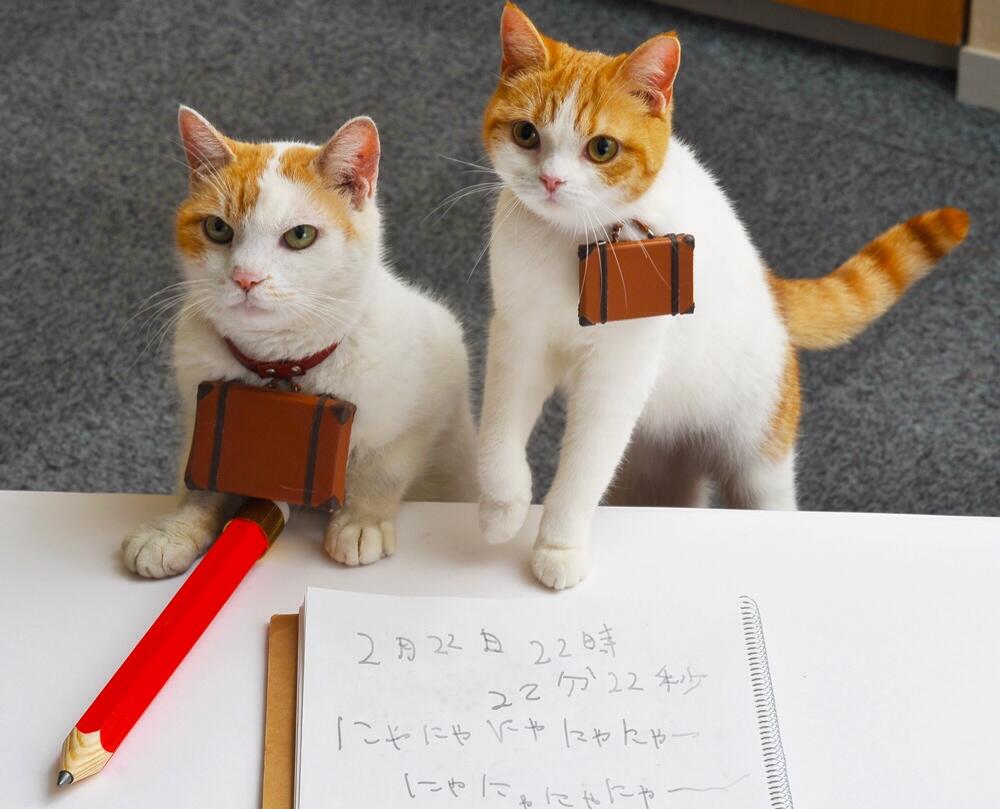 2月22日 22時
22分22秒
にゃにゃにゃにゃにゃー
にゃにゃにゃにゃー